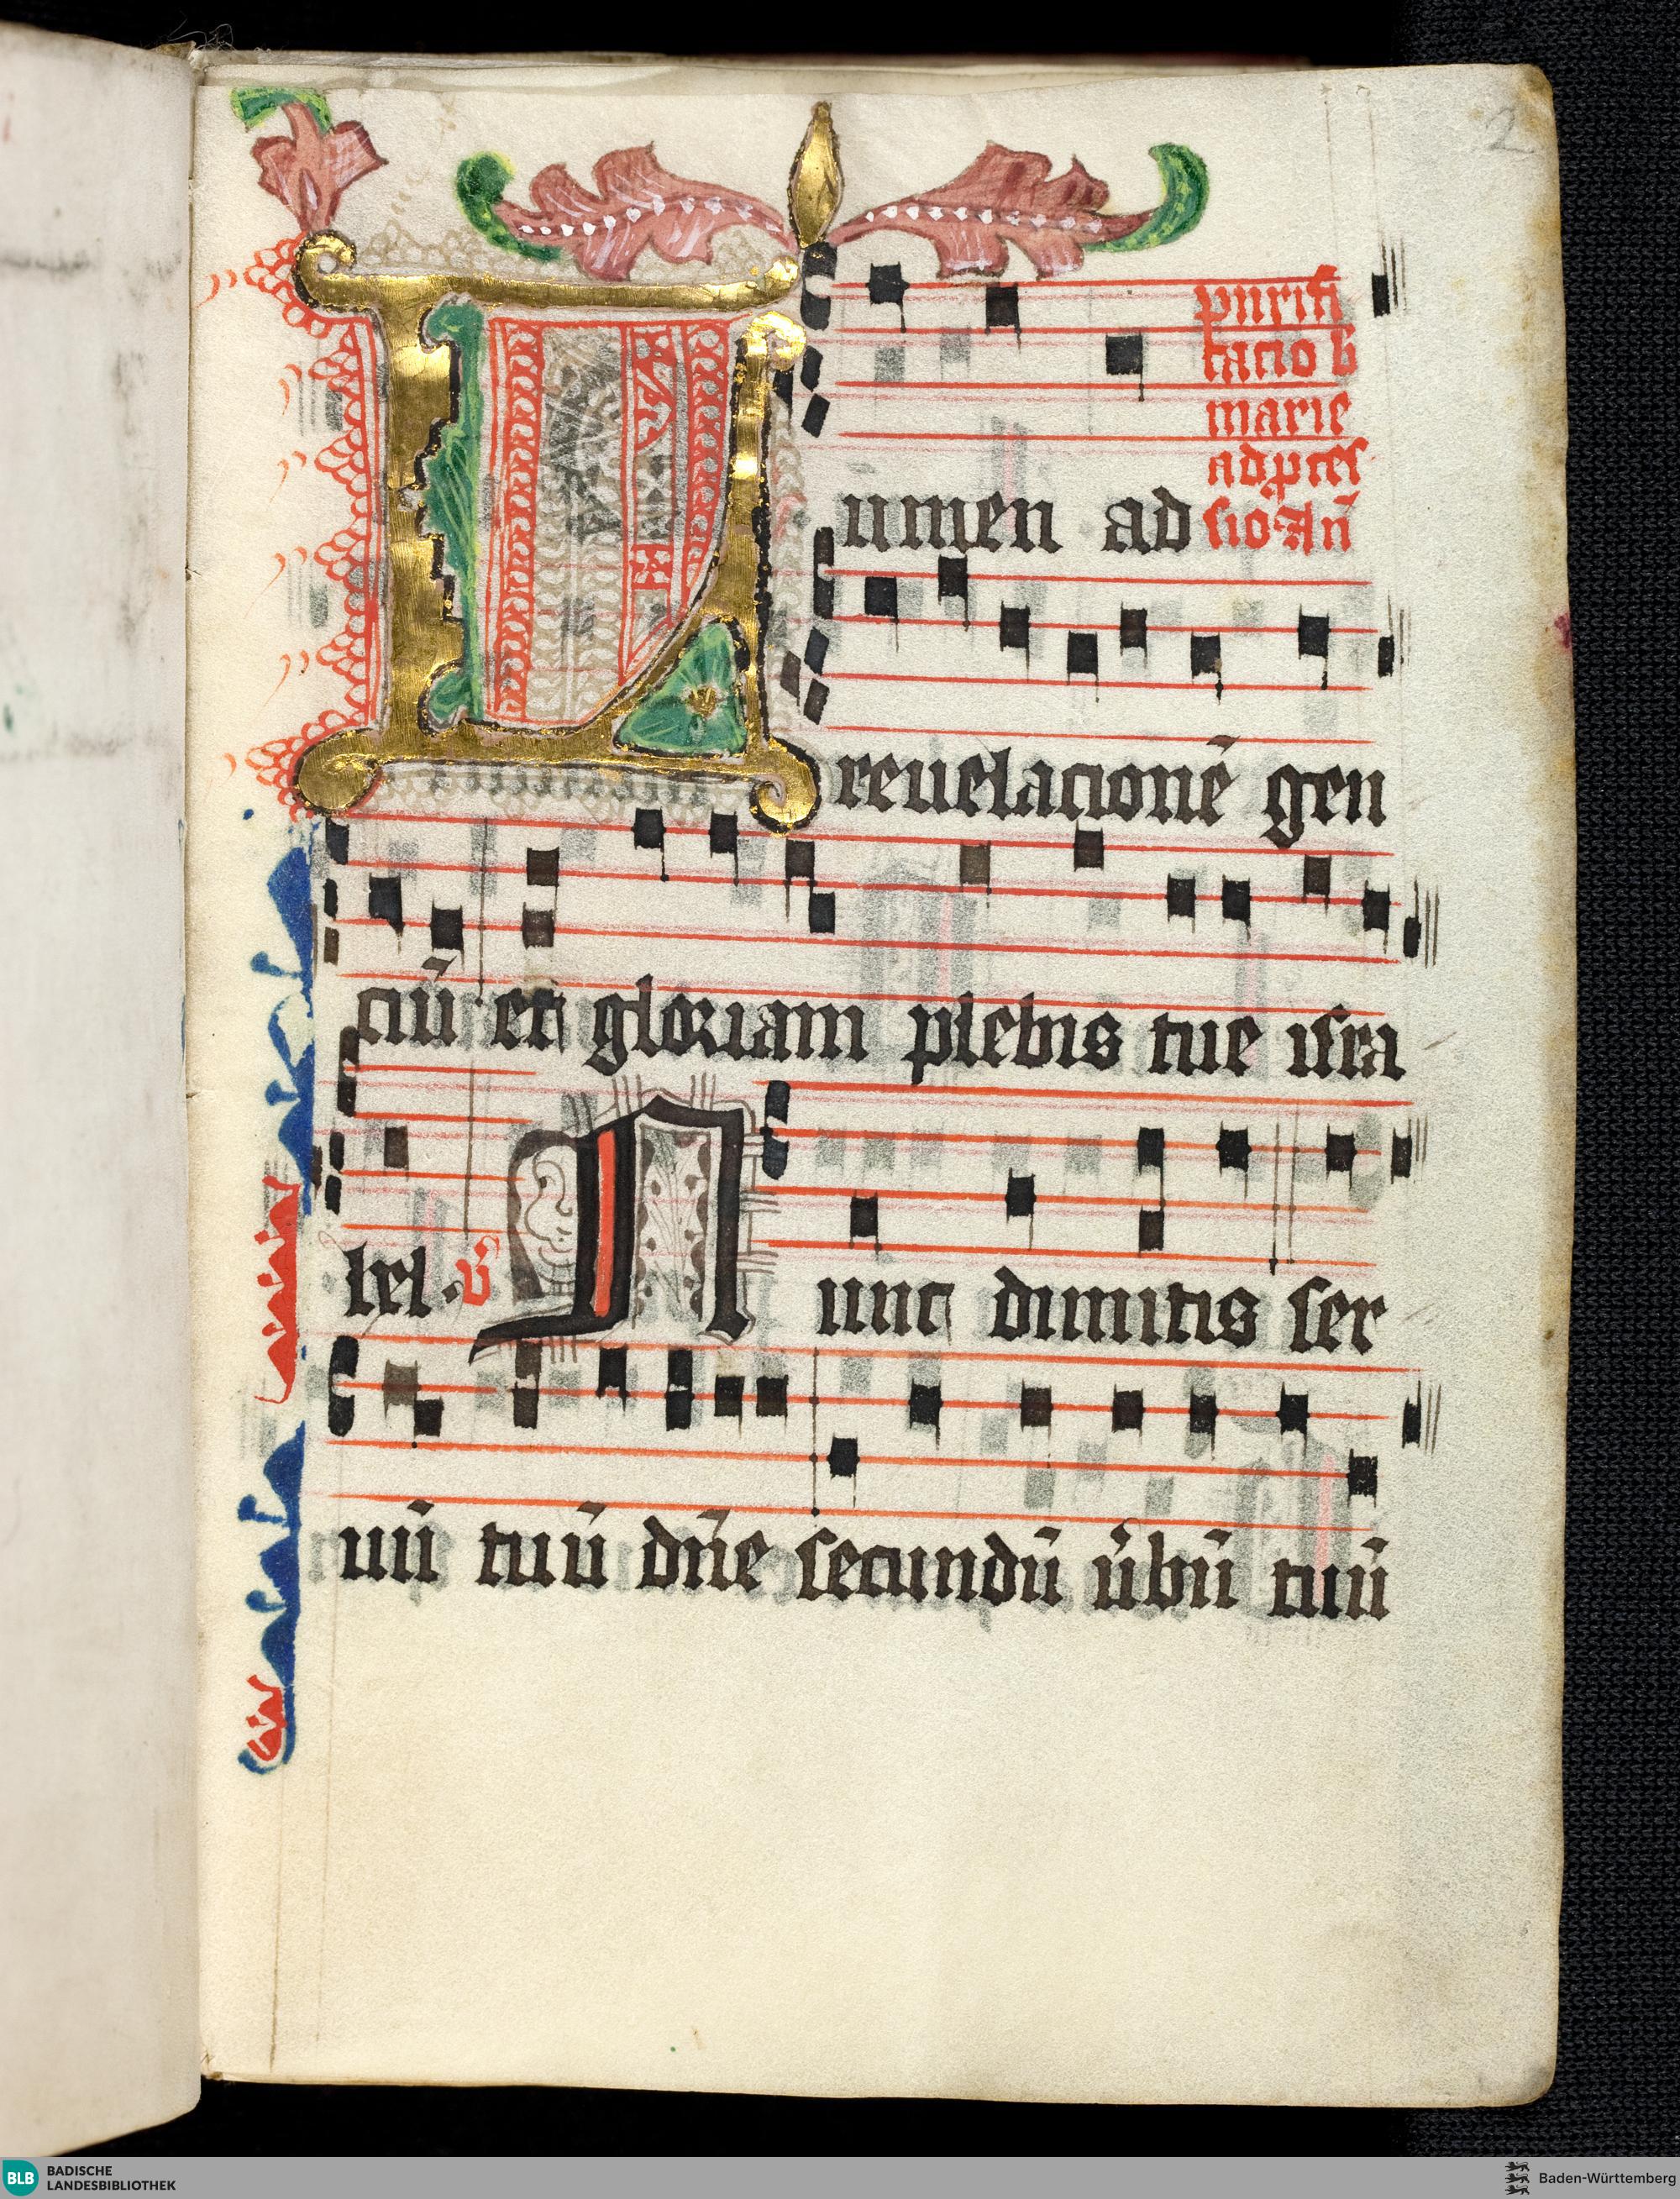 2
purifi
catio b
marie
ad p̱ces
sio An̄
Lumen ad
reuelacionē gen
ciū et gloriam plebis tue isra
hel · v̄ Nunc dimittis ser
uū tuū dn̄e secundū v̓bū tuū
BLB BADISCHE
LANDESBIBLIOTHEK
Baden-Württemberg